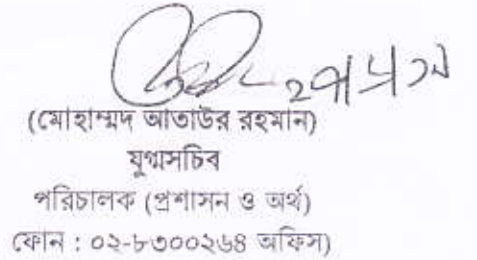 (মোহাম্মদ আতাউর রহমান)
যুগ্মসচিব
পরিচালক (প্রশাসন ও অর্থ)
ফোন : ০২-৮৩০০২৬৪ অফিস)